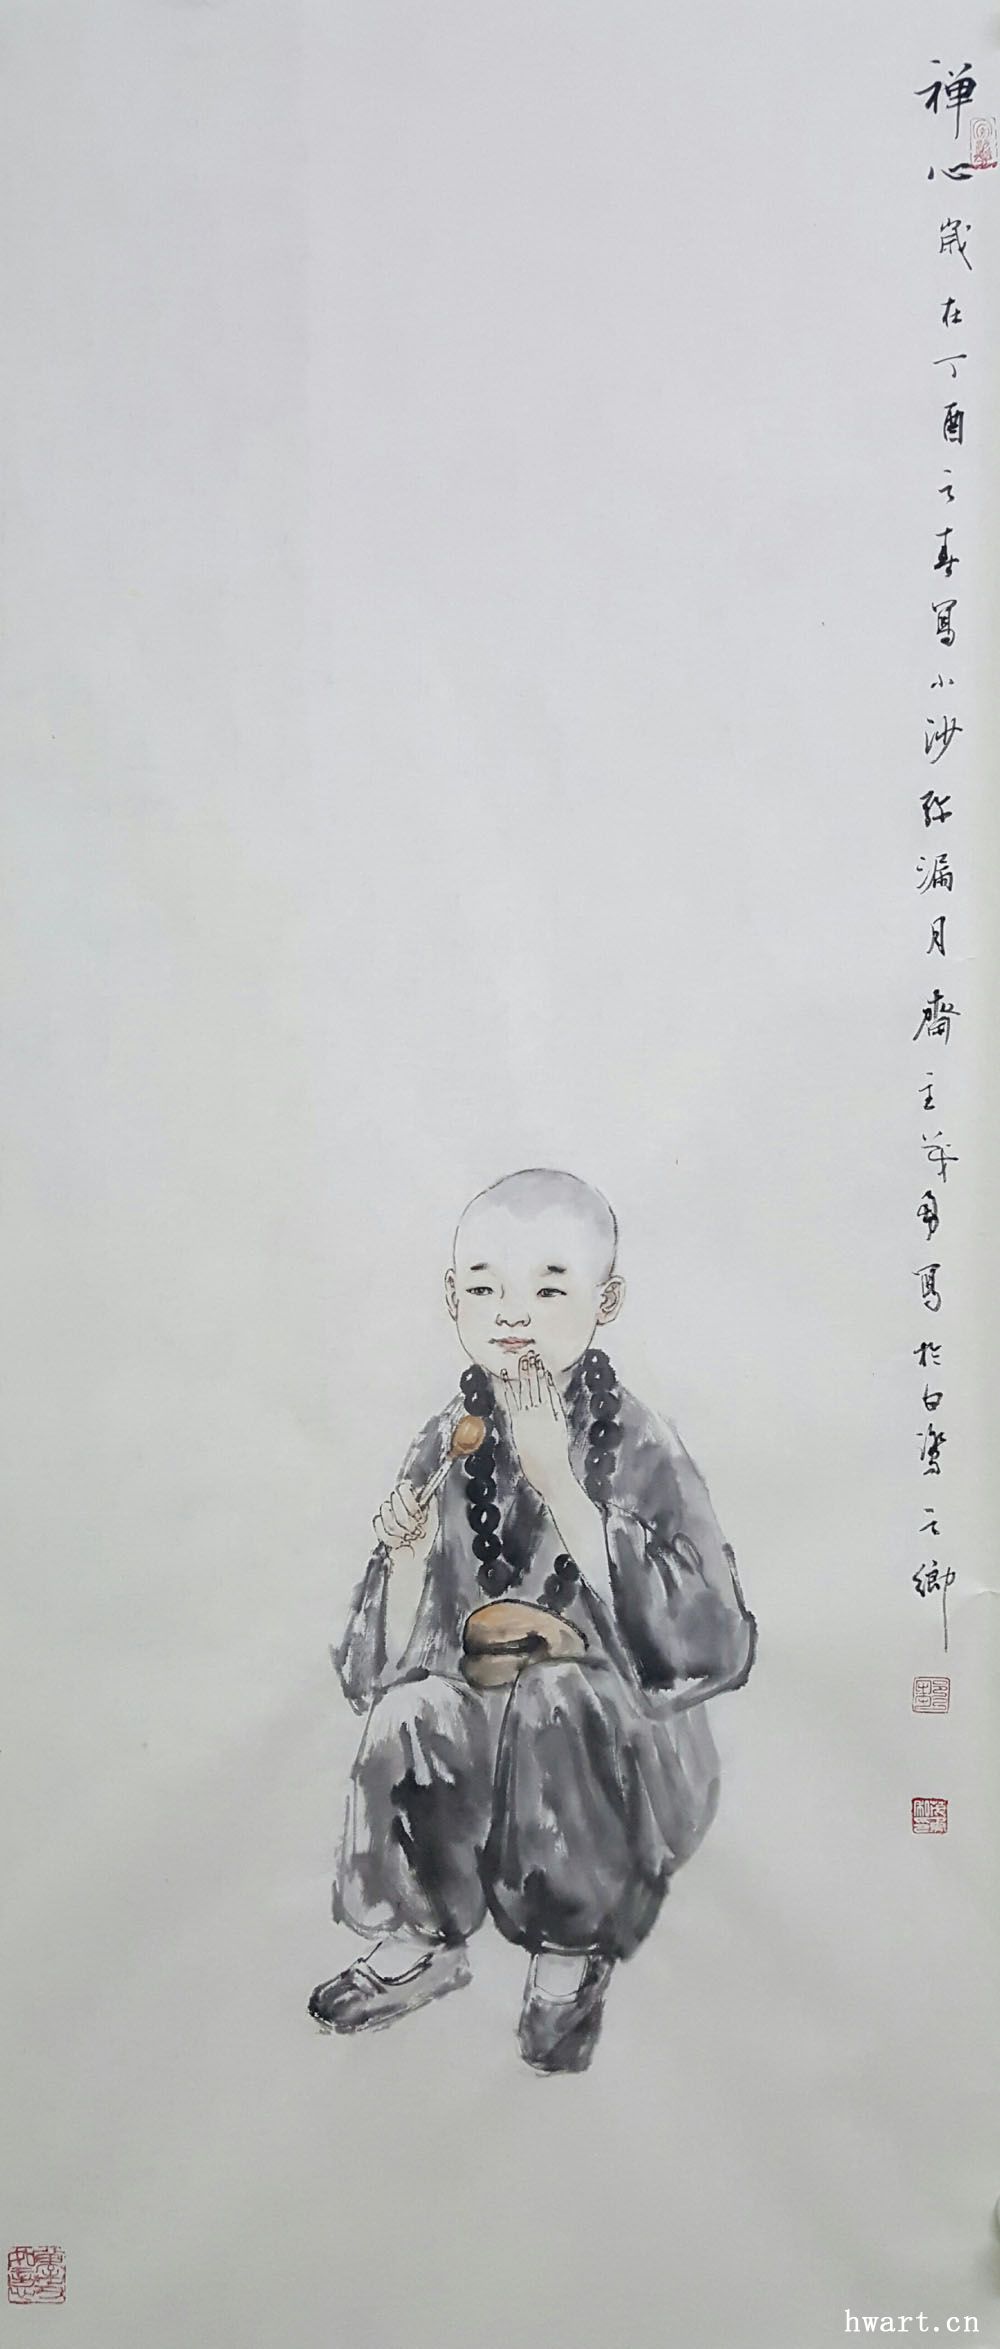 禅心 歲在丁酉之春寫小沙弥漏月齋主茂勇寫於白鹭之鄉
hwart.cn